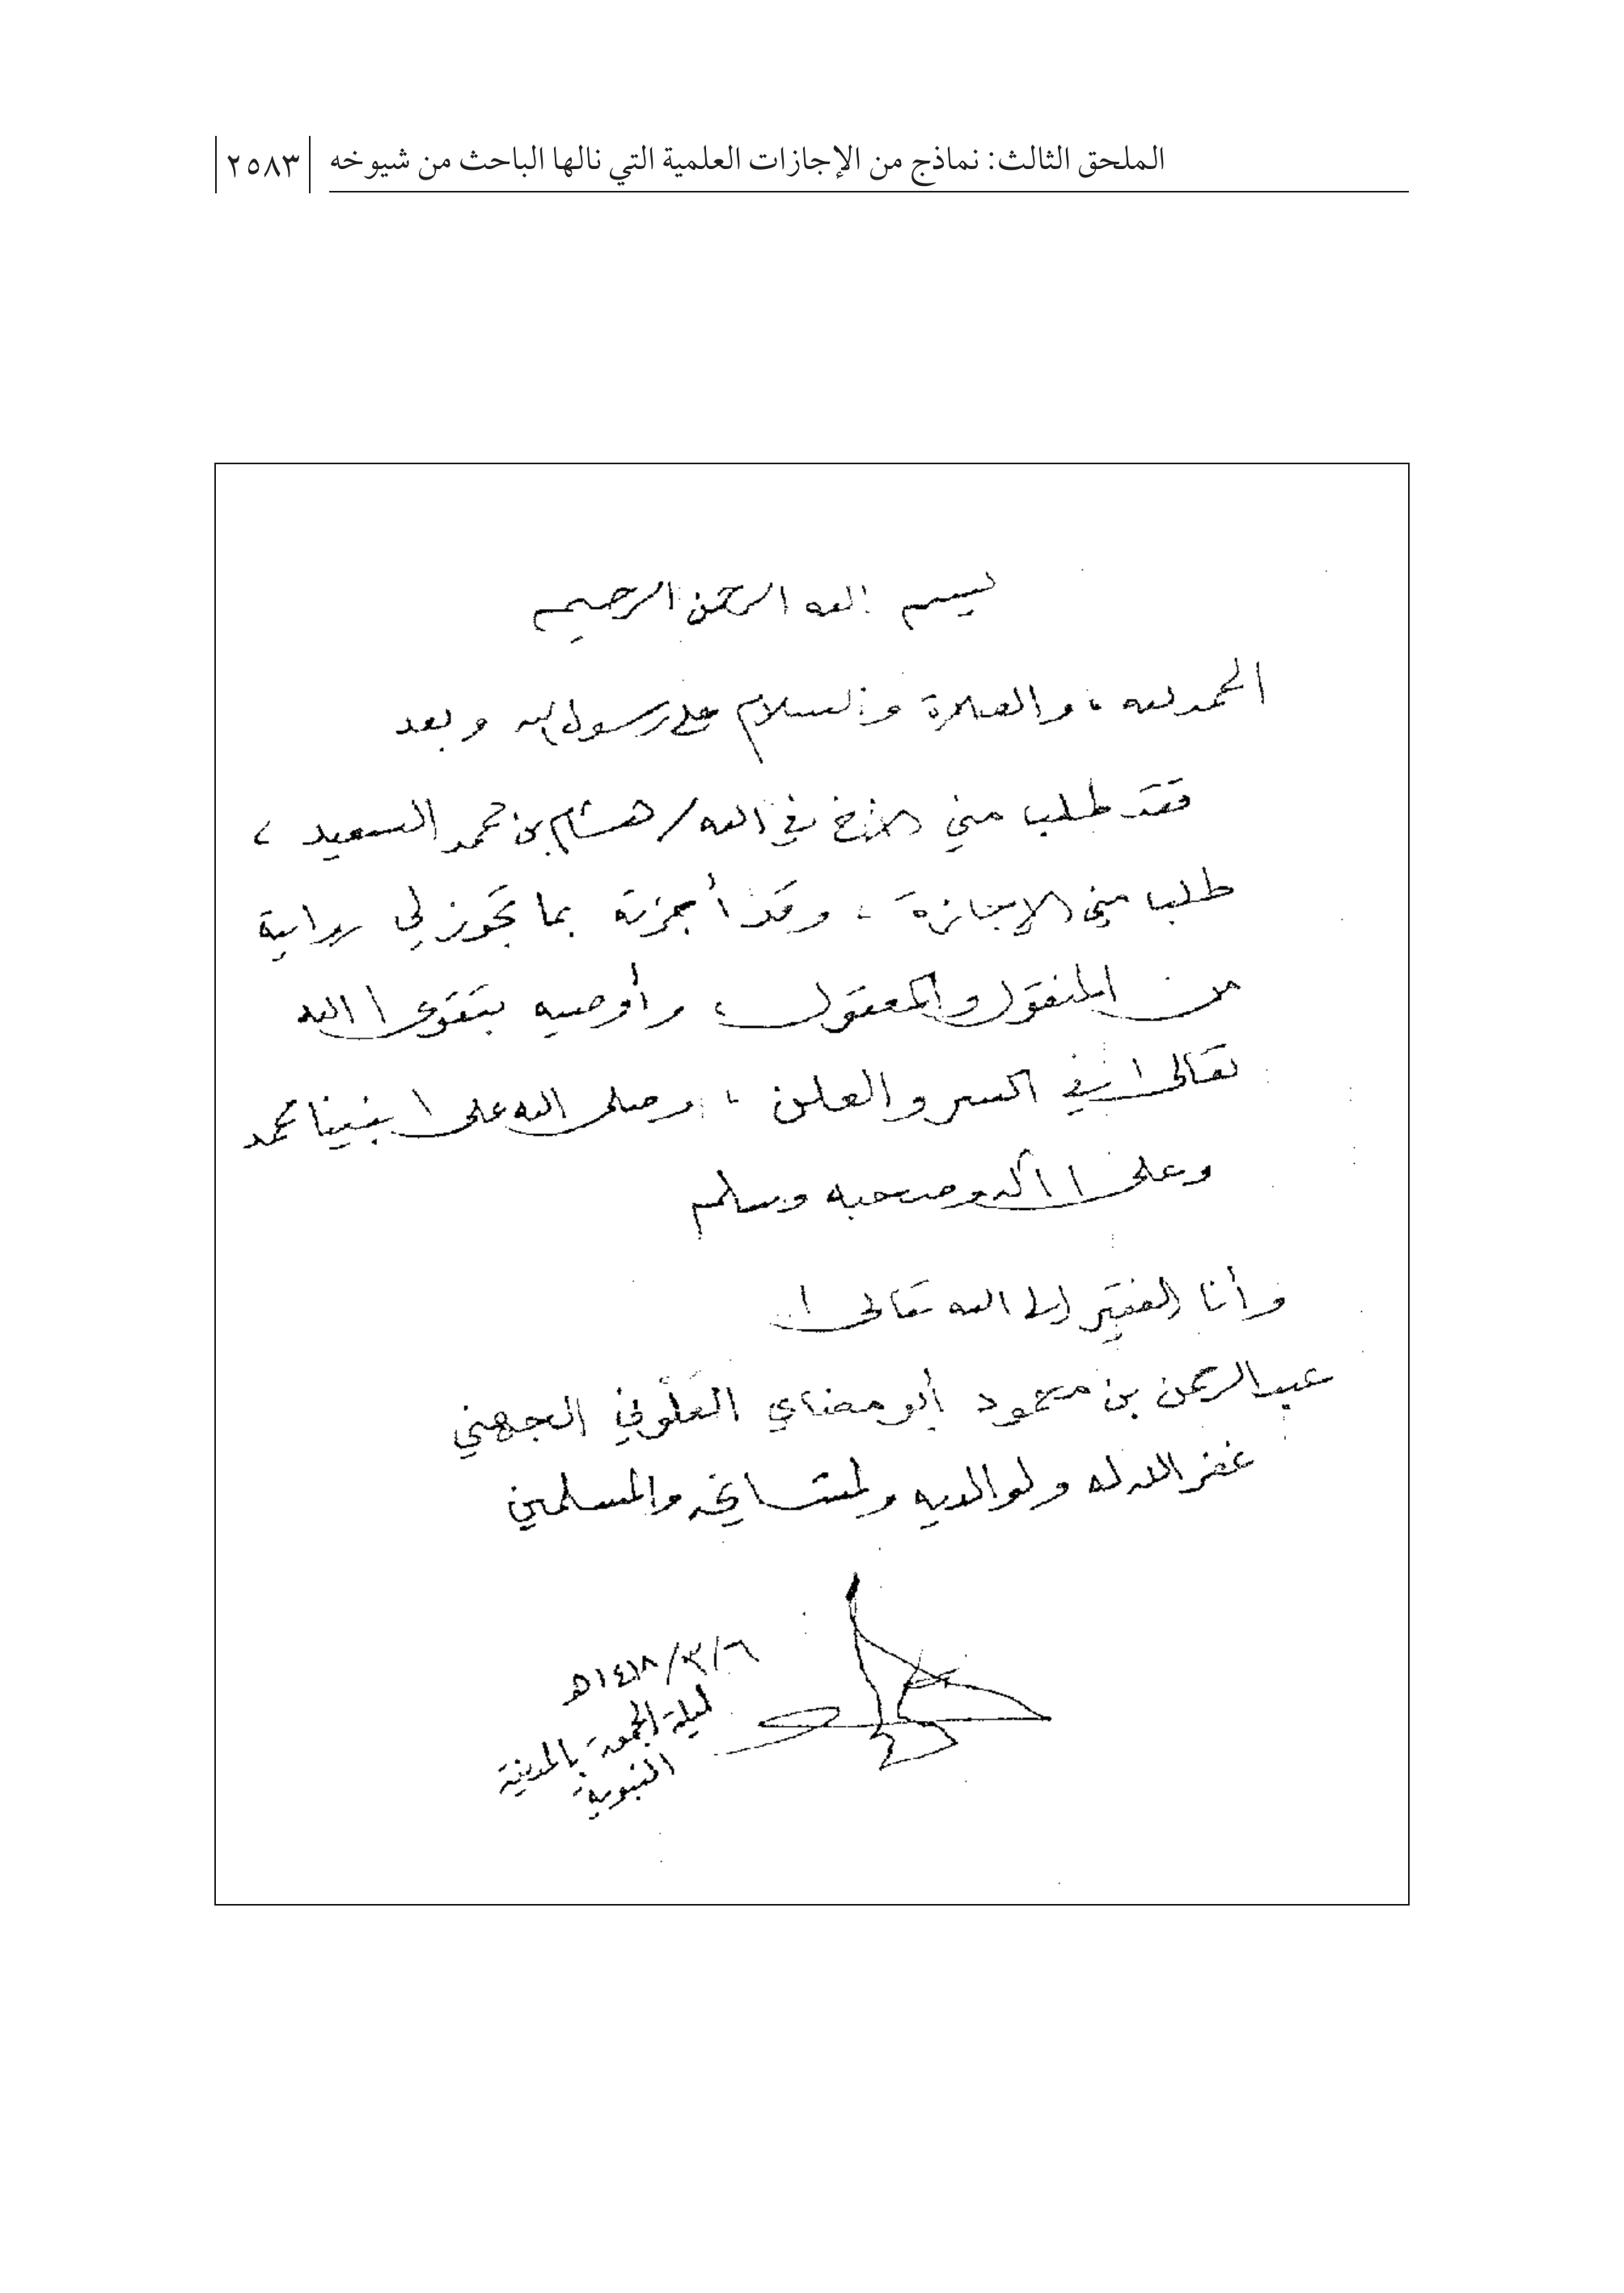 الملحق الثالث: نماذج من الإجازات العلمية التي نالها الباحث من شيوخه ٢٥٨٣
بسم الله الرحمن الرحيم
الحمد لله، والصلاة والسلام على رسول الله وبعد
فقد طلب مني الأخ في الله / هشام بن محمد السعيد،
طلب مني الإجازة، وقد أجزته بما تجوز لي رواية
من المنقول والمعقول، وأوصيه بتقوى الله
تعالى في السر والعلن، وصلى الله على نبينا محمد
وعلى آله وصحبه وسلم
وأنا الفقير إلى الله تعالى
عبد الرحمن بن محمود أبو مضاي العلوني الجهني
غفر الله له ولوالديه ولمشايخه والمسلمين
٦/٣/١٤١٨هـ
ليلة الجمعة بالمدينة
النبوية